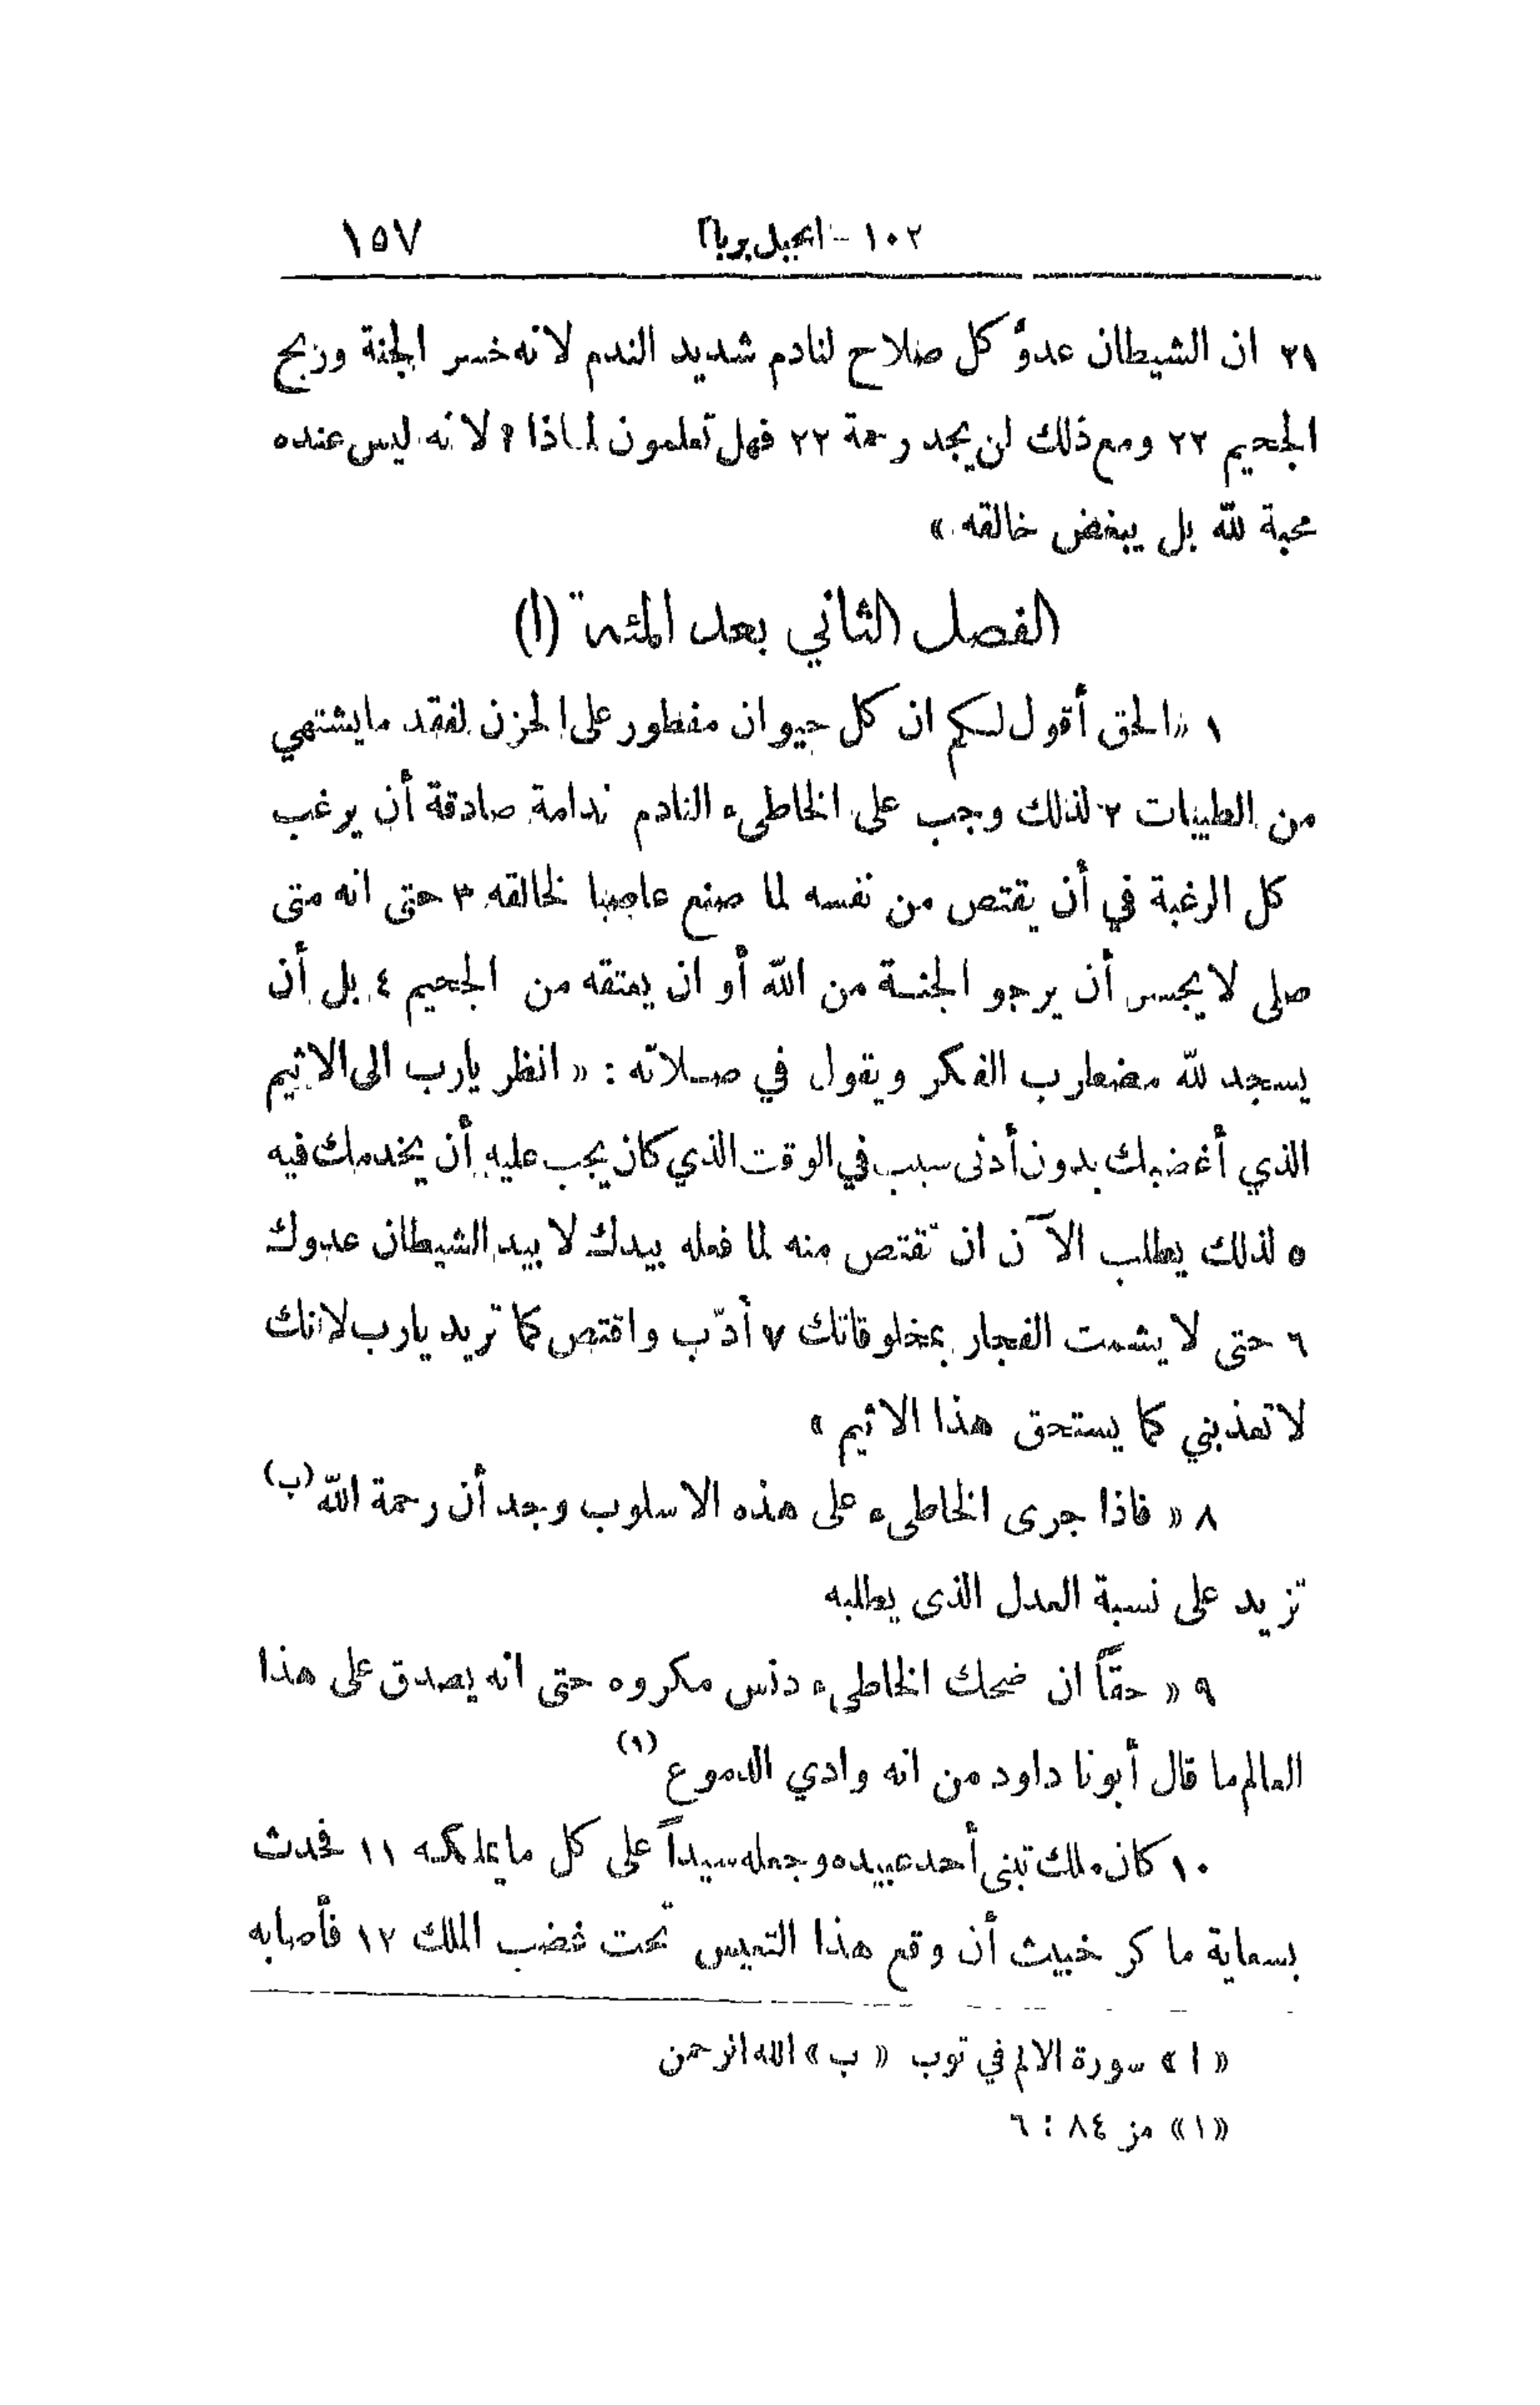 ١٠٢ - انجيل برنابا ١٥٧
٢١ ان الشيطان عدوّ كل صلاح لنادم شديد الندم لانه خسر الجنة وربح
الجحيم ٢٢ ومع ذلك لن يجد رحمة ٢٢ فهل تعلمون لماذا ؟ لانه ليس عنده
محبة لله بل يبغض خالقه »
الفصل الثاني بعد المئة (ا)
١ « الحق أقول لكم ان كل حيوان مفطور على الحزن لفقد ما يشتهي
من الطيبات ٢ لذلك وجب على الخاطىء النادم ندامة صادقة أن يرغب
كل الرغبة في أن يقتص من نفسه لما صنع عاصيا لخالقه ٣ حتى انه متى
صلى لا يجسر أن يرجو الجنة من الله أو ان يعتقه من الجحيم ٤ بل أن
يسجد لله مضطرب الفكر ويقول في صلاته : « انظر يارب الى الاثيم
الذي أغضبك بدون أدنى سبب في الوقت الذي كان يجب عليه أن يخدمك فيه
٥ لذلك يطلب الآن ان تقتص منه لما فعله بيدك لا بيد الشيطان عدوك
٦ حتى لا يشمت الفجار بمخلوقاتك ٧ أدّب واقتص كما تريد يارب لانك
لا تعذبني كما يستحق هذا الاثيم »
٨ « فاذا جرى الخاطىء على هذه الاسلوب وجد أن رحمة الله (ب)
تزيد على نسبة العدل الذى يطلبه
٩ « حقاً ان ضحك الخاطىء دنس مكروه حتى انه يصدق على هذا
العالم ما قال أبونا داود من انه وادي الدموع (١)
١٠ كان ملك تبنى أحد عبيده وجعله سيداً على كل ما يملكه ١١ فحدث
بسعاية ماكر خبيث أن وقع هذا التعيس تحت غضب الملك ١٢ فأصابه
« ا » سورة الالم في توب « ب » الله الرحمن
« ١ » مز ٨٤ : ٦